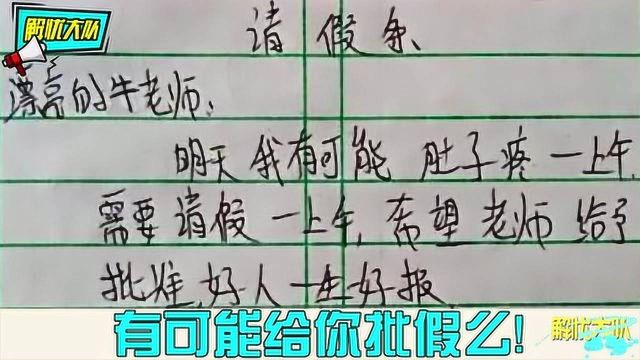 解忧大队
请假条
漂亮的牛老师:
明天我有可能肚子疼一上午,
需要请假一上午,希望老师给予
批准,好人一生好报
有可能给你批假么!
解忧大队